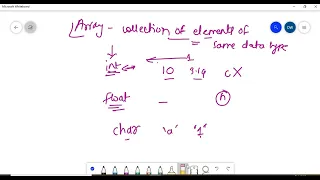 Array - collection of elements of
same data type
1
int 10 9.19 cX
float - n
char 'a' "1"